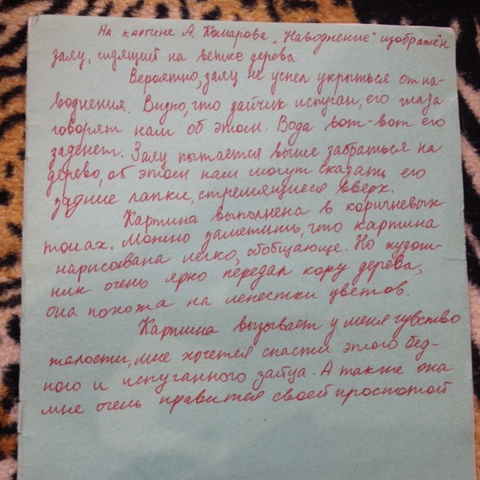 На картине А. Комарова „Наводнение" изображён
заяц, сидящий на ветке дерева.
Вероятно, заяц не успел укрыться от на-
воднения. Видно, что зайчик испуган, его глаза
говорят нам об этом. Вода вот-вот его
заденет. Заяц пытается выше забраться на
дерево, об этом нам могут сказать его
задние лапки, стремящиеся вверх.
Картина выполнена в коричневых
тонах. Можно заметить, что картина
нарисована легко, обобщающе. Но худож-
ник очень ярко передал кору дерева,
она похожа на лепестки цветов.
Картина вызывает у меня чувство
жалости, мне хочется спасти этого бед-
ного и испуганного зайца. А также она
мне очень нравится своей простотой